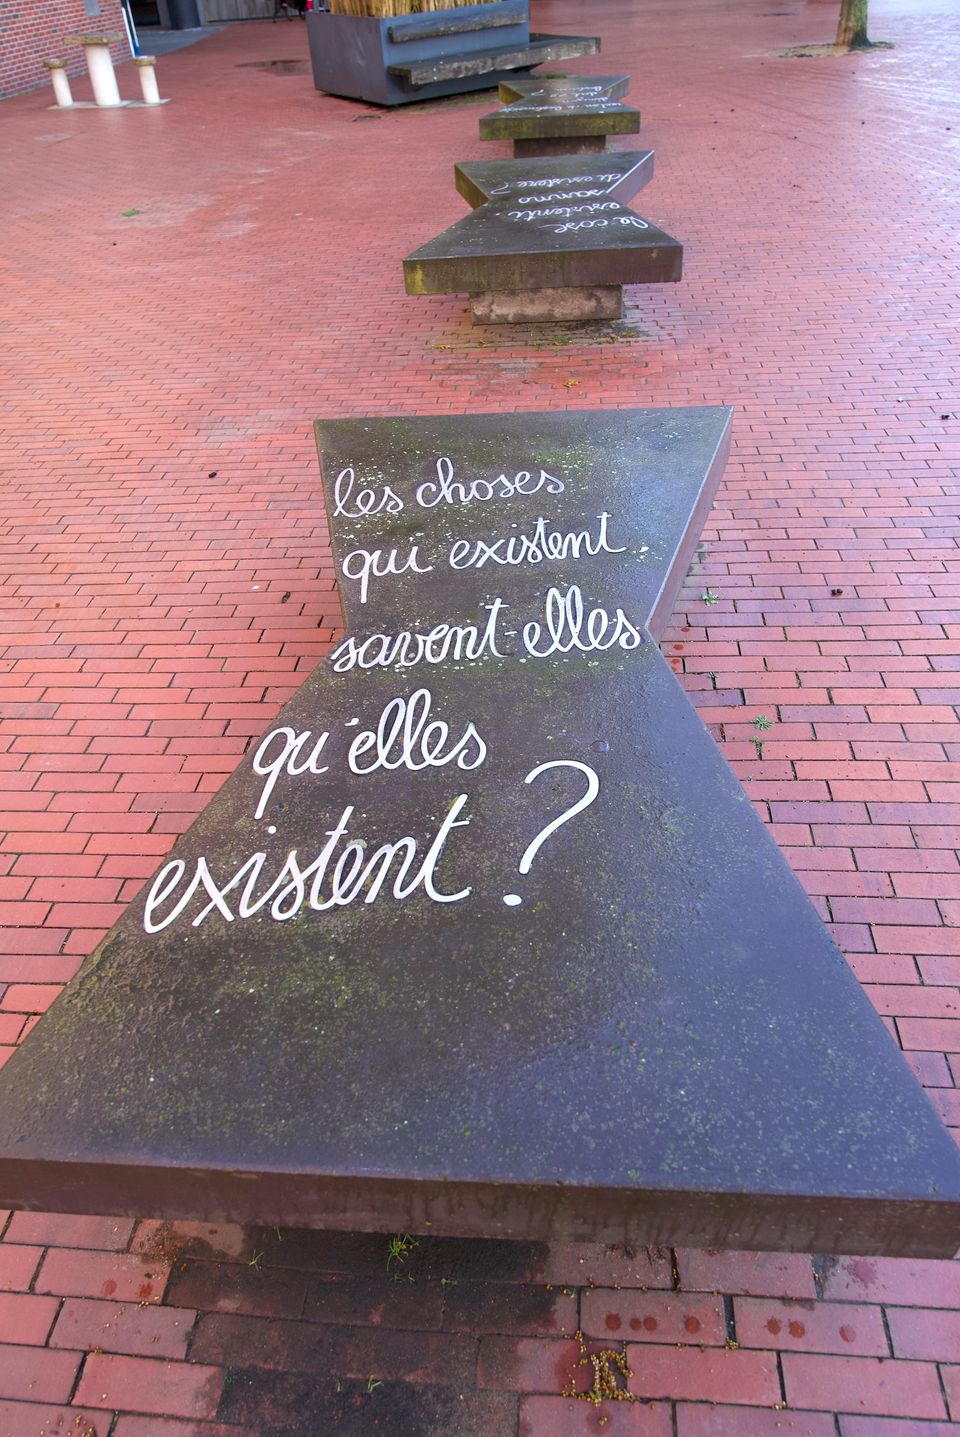 les choses
qui existent.
savent-elles
qu'elles
existent ?
le cose
esistenti.
sanno
di esistere ?